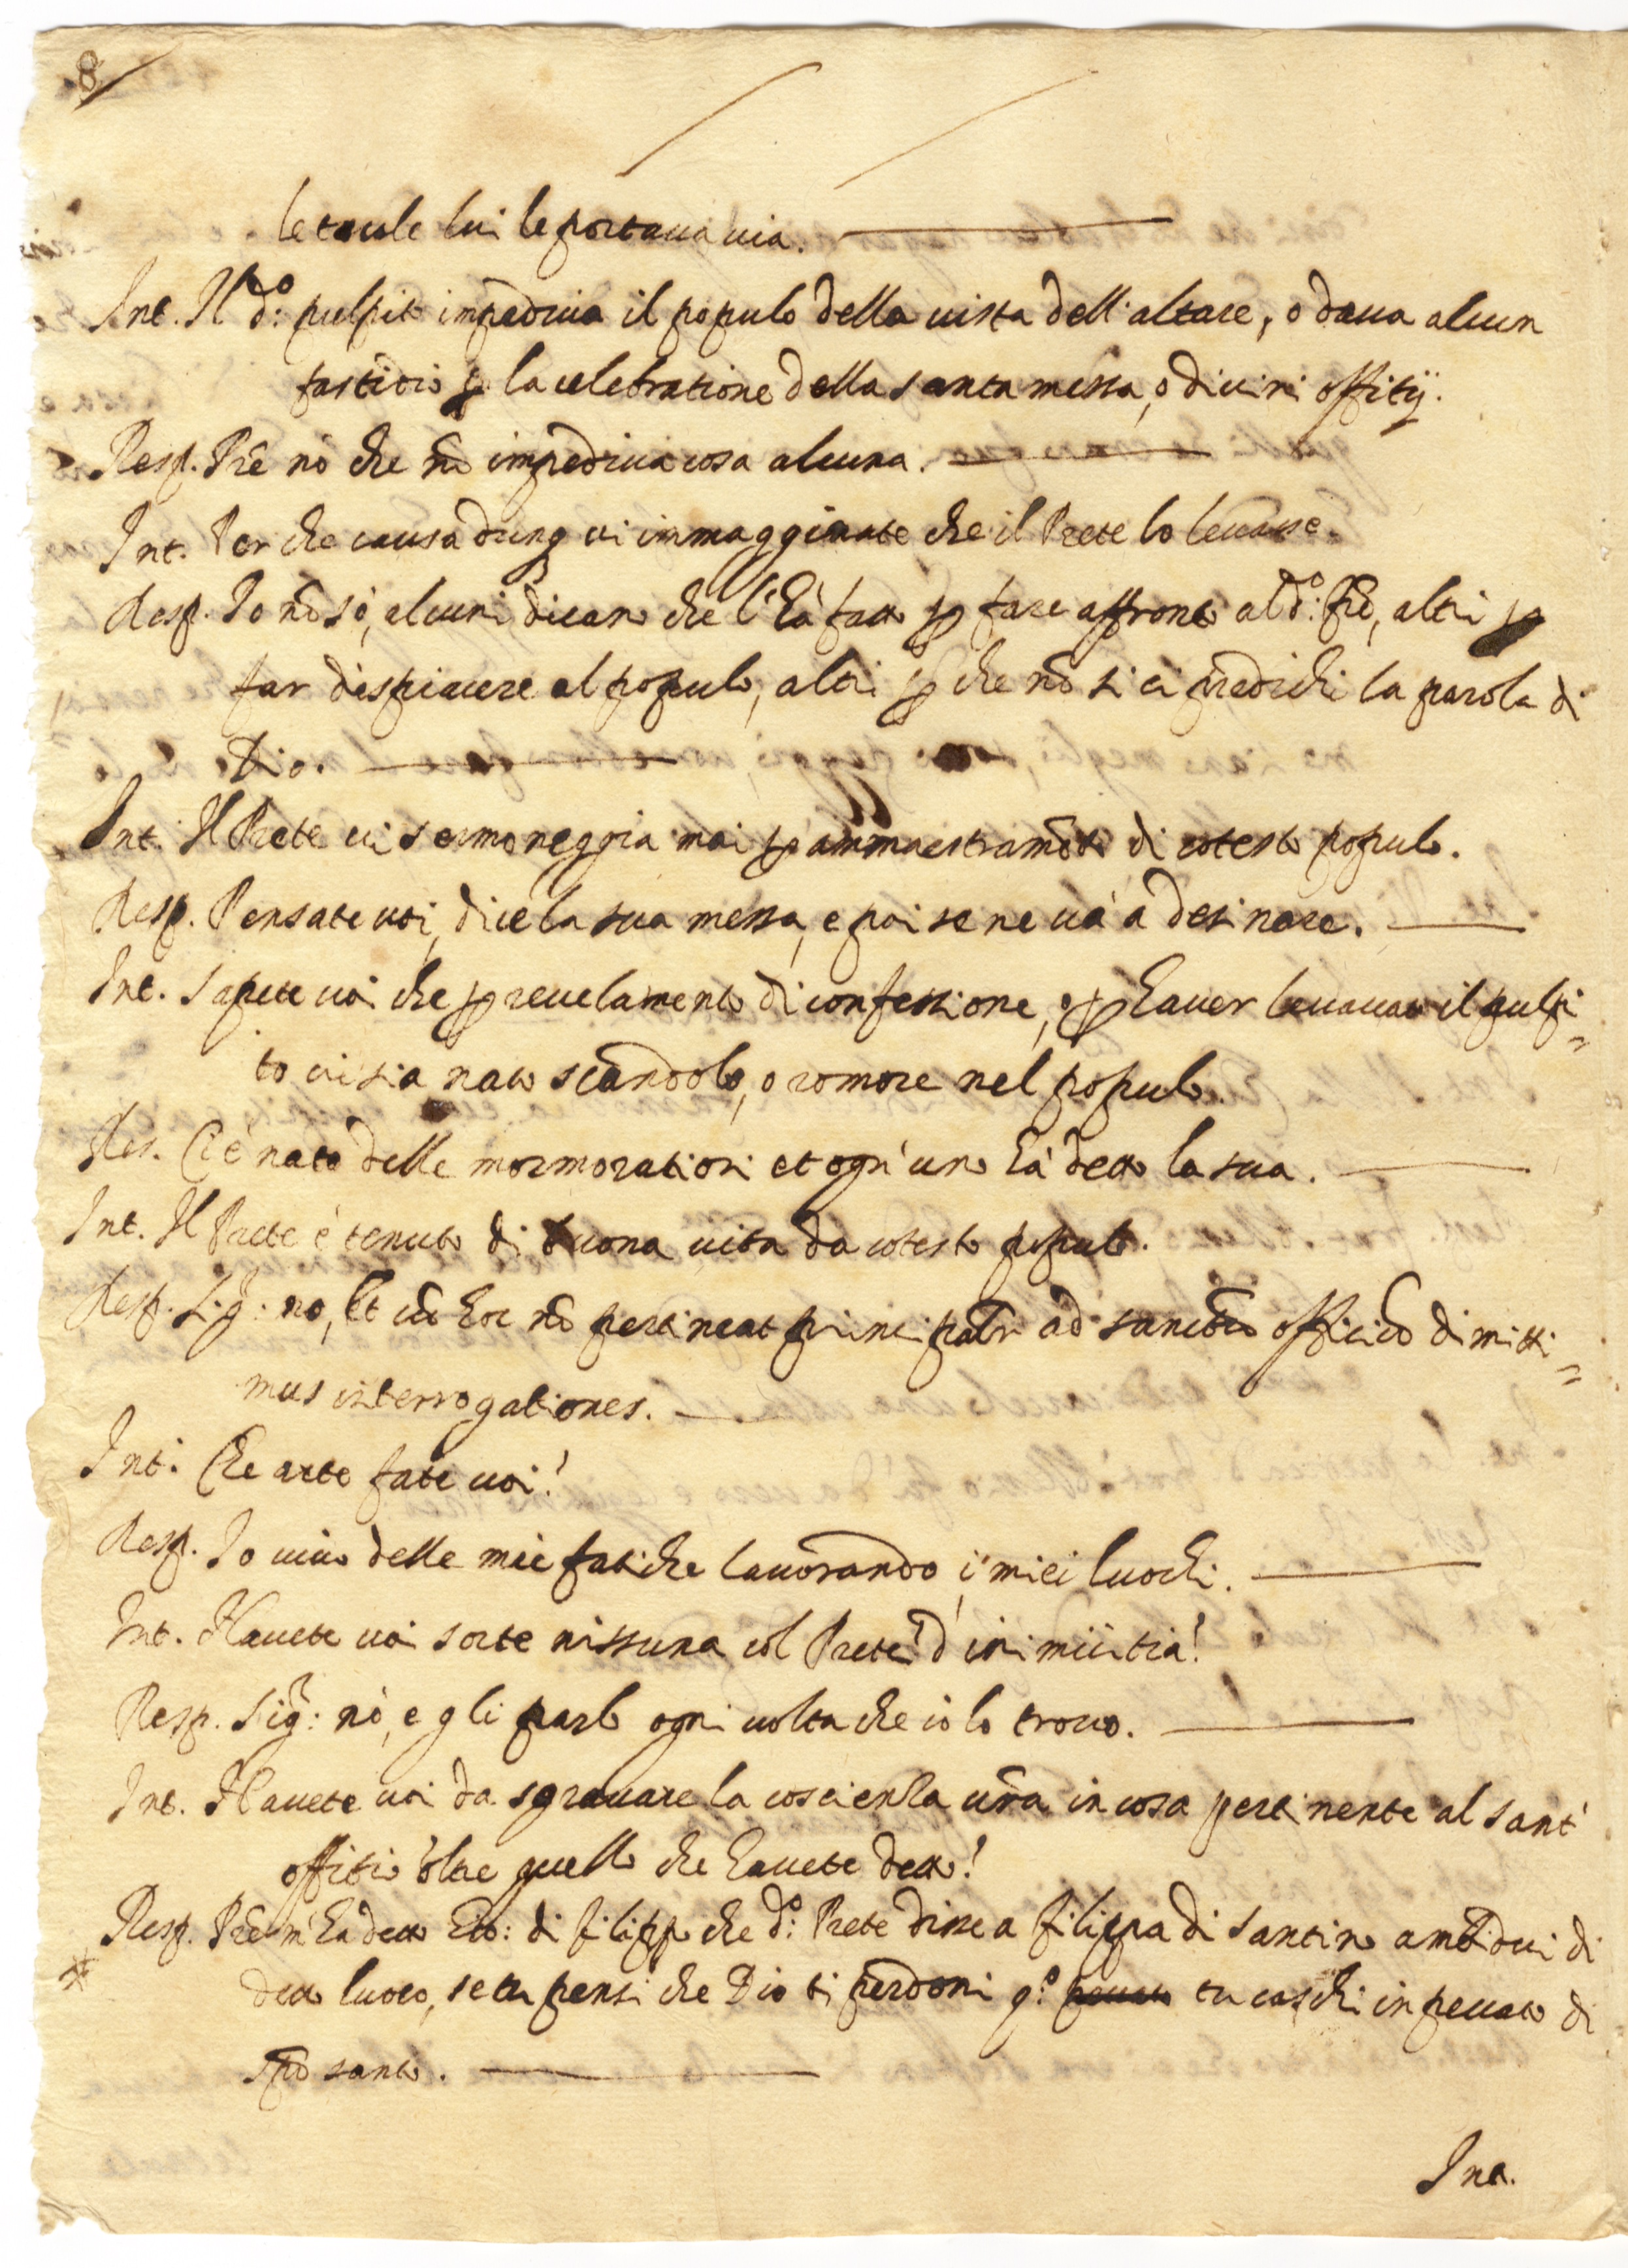 8
le tavole lui le portava via.
Int. Il d.º pulpito impediva il populo della vista dell'altare, o dava alcun
fastidio p la celebratione della santa messa, o divini offitij.
Resp. Prē nò che nō impediva cosa alcuna.
Int. Per che causa dunq vi immagginate che il Prete lo levasse.
Resp. Io nō sò, alcuni dicano che l'hà fatto p fare affronto al d.º frē, altri p
far dispiacere al populo, altri p che nō si ci predichi la parola di
Dio.
Int. Il Prete vi sermoneggia mai p ammaestramēto di cotesto populo.
Resp. Pensate voi, dice la sua messa, e poi se ne và a desinare.
Int. Sapete voi che p revelamento di confessione, o p haver levato il pulpi=
to vi sia nato scandolo, o romore nel populo.
Res. Ci è nato delle mormorationi et ogn'uno hà detto la sua.
Int. Il Prete è tenuto di buona vita da cotesto populo.
Resp. Sig.r: no, Et cū hoc nō pertineat principalr ad sanctū officiū dimitti=
mus interrogationes.
Int. Che arte fate voi?
Resp. Io vivo delle mie fatiche lavorando i miei luochi.
Int. Havete voi sorte nissuna col Prete d'inimicitia?
Resp. Sig.r: nò, e gli parlo ogni volta che io lo trovo.
Int. Havete voi da sgravare la coscienza vr̄a in cosa pertinente al sant'
offitio oltre quello che havete detto?
Resp. Prē m'hà detto Gio: di filippo che d.º: Prete disse a filippa di Santino ambidui di
* detto luoco, se tu pensi che Dio ti perdoni q.º tu caschi in peccato di
Sp̄o santo.
Int.